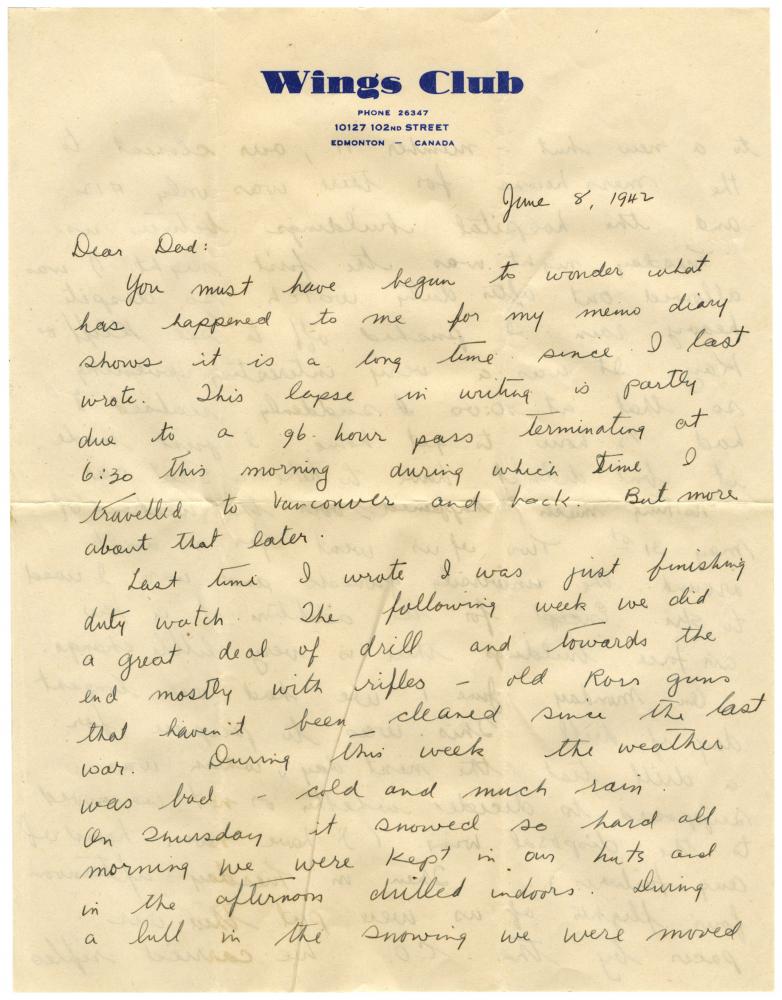 Wings Club
PHONE 26347
10127 102ND STREET
EDMONTON — CANADA
June 8, 1942
Dear Dad:
You must have begun to wonder what
has happened to me for my memo diary
shows it is a long time since I last
wrote. This lapse in writing is partly
due to a 96 hour pass terminating at
6:30 this morning during which time I
travelled to Vancouver and back. But more
about that later.
Last time I wrote I was just finishing
duty watch. The following week we did
a great deal of drill and towards the
end mostly with rifles – old Ross guns
that haven't been cleaned since the last
war. During this week the weather
was bad – cold and much rain.
On Thursday it snowed so hard all
morning we were kept in our huts and
in the afternoon drilled indoors. During
a lull in the snowing we were moved